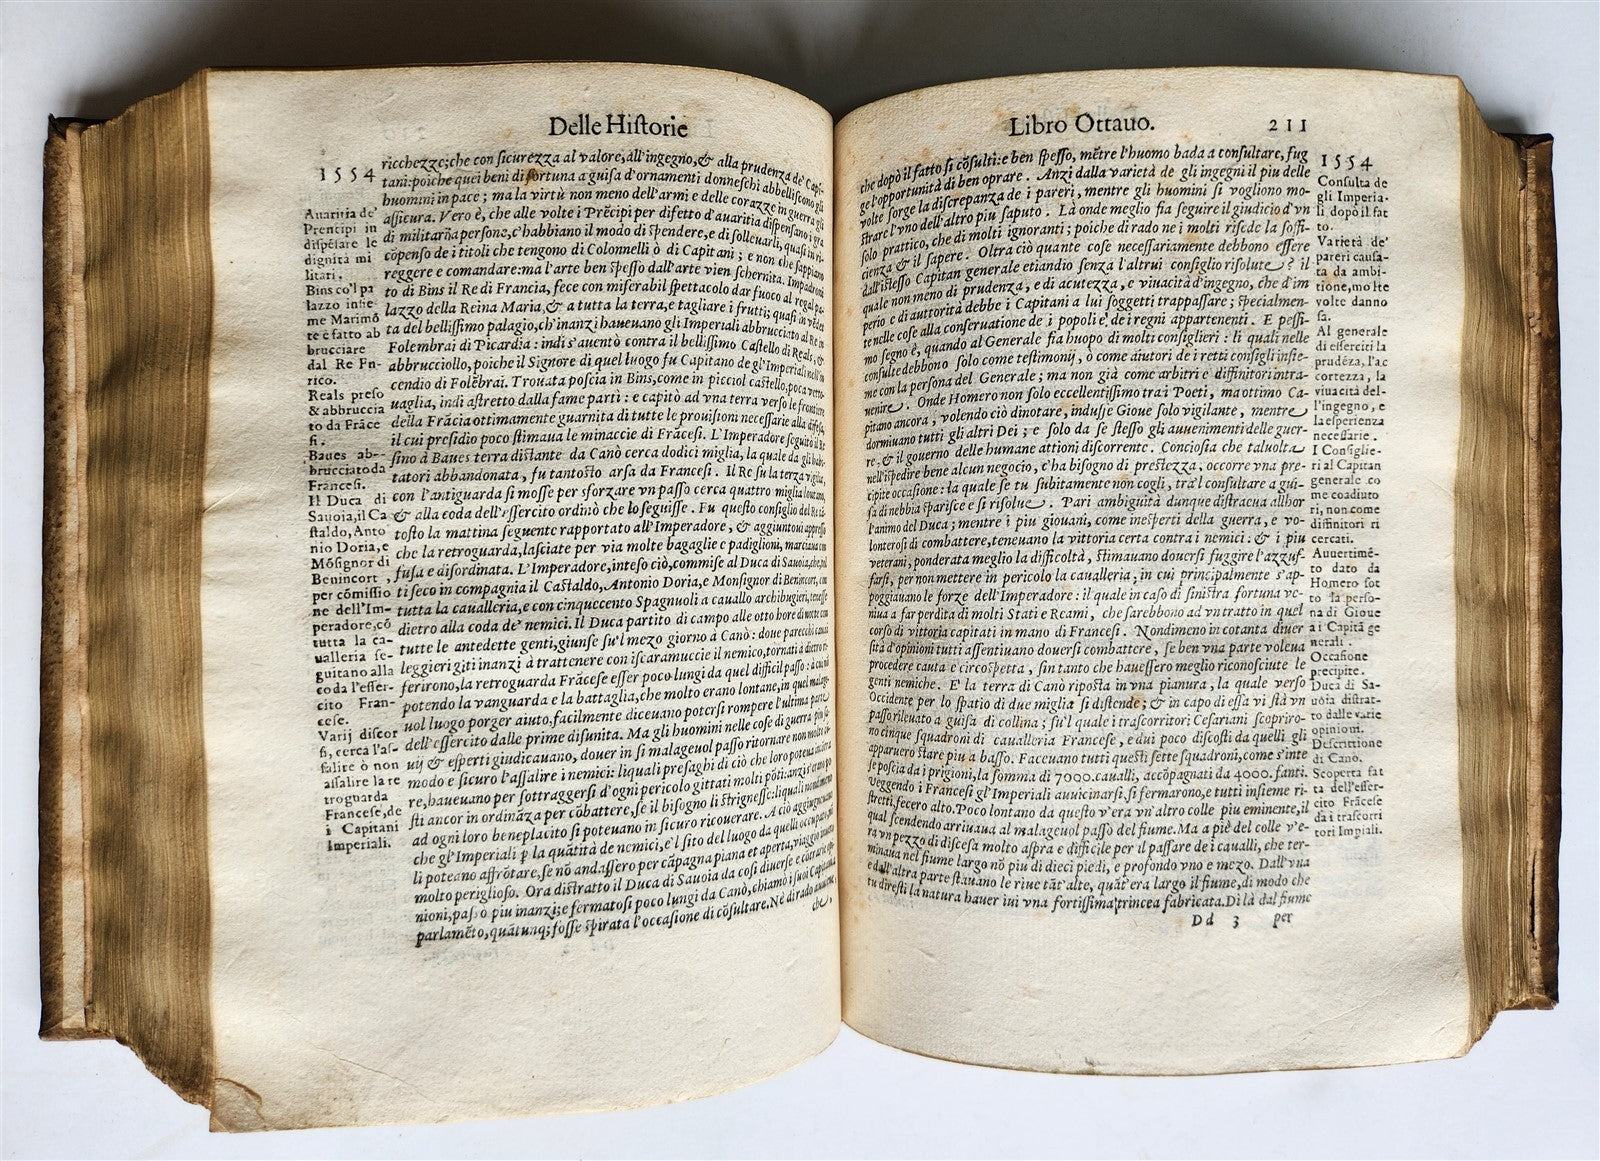 Delle Historie
1554
ricchezze; che con sicurezza al valore, all'ingegno, & alla prudenza de' Capi-
tani: poiche quei beni di fortuna a guisa d'ornamenti donneschi abbelliscono gli
huomini in pace; ma la virtù non meno dell'armi e delle corazze in guerra gli
assicura. Vero è, che alle volte i Prẽcipi per difetto d'auaritia dispensano i gra
di militari a persone, c'habbiano il modo di spendere, e di solleuarli, quasi in ri-
cõpenso de i titoli che tengono di Colonnelli ò di Capitani; e non che sappiano
reggere e comandare: ma l'arte ben spesso dall'arte vien schernita. Impadroni
to di Bins il Re di Francia, fece con miserabil spettacolo dar fuoco al regal pa-
lazzo della Reina Maria, & a tutta la terra, e tagliare i frutti; quasi in
ta del bellissimo palagio, ch'inanzi haueuano gli Imperiali abbrucciato al Re in
Folembrai di Picardia: indi s'auentò contra il bellissimo Castello di Reals, &
abbrucciollo, poiche il Signore di quel luogo fu Capitano de gl'Imperiali nell'in
cendio di Folẽbrai. Trouata poscia in Bins, come in picciol castello, poca vetto-
uaglia, indi astretto dalla fame partì: e capitò ad vna terra verso le frontiere
della Frãcia ottimamente guarnita di tutte le prouisioni necessarie alla difesa,
il cui presidio poco stimaua le minaccie di Frãcesi. L'Imperadore seguitò il Re
sino à Baues terra distante da Canò cerca dodici miglia, la quale da gli habi-
tatori abbandonata, fu tantosto arsa da Francesi. Il Re su la terza vigilia,
con l'antiguarda si mosse per sforzare vn passo cerca quattro miglia lontano,
& alla coda dell'essercito ordinò che lo seguisse. Fu questo consiglio del Re
tosto la mattina seguente rapportato all'Imperadore, & aggiuntoui appresso
che la retroguarda, lasciate per via molte bagaglie e padiglioni, marciaua con
fusa e disordinata. L'Imperadore, inteso ciò, commise al Duca di Sauoia, che,
ti seco in compagnia il Castaldo, Antonio Doria, e Monsignor di Benincort, con
tutta la caualleria, e con cinquecento Spagnuoli a cauallo archibugieri, tenesse
dietro alla coda de' nemici. Il Duca partito di campo alle otto hore di notte con
tutte le antedette genti, giunse su'l mezo giorno à Canò: doue parecchi caualli
leggieri giti inanzi à trattenere con iscaramuccie il nemico, tornati à dietro ri-
ferirono, la retroguarda Frãcese esser poco lungi da quel difficil passo: à cui
potendo la vanguarda e la battaglia, che molto erano lontane, in quel malage-
uol luogo porger aiuto, facilmente diceuano potersi rompere l'ultima parte
dell'essercito dalle prime disunita. Ma gli huomini nelle cose di guerra più
uij & esperti giudicauano, douer in sì malageuol passo ritornare non molto
modo e sicuro l'assalire i nemici: liquali presaghi di ciò che loro potea
re, haueuano per sottraggersi d'ogni pericolo gittati molti põti: anzi s'erano
sti ancor in ordinãza per cõbattere, se il bisogno li strignesse: liquali
ad ogni loro beneplacito si poteuano in sicuro ricouerare. A ciò aggiugneuano
che gl'Imperiali ꝑ la quãtità de nemici, e'l sito del luogo da quelli occupato,
li poteano affrõtare, se nõ andassero per cãpagna piana et aperta, viaggio
molto periglioso. Ora distratto il Duca di Sauoia da così diuerse e contrarie opi-
nioni, passò più inanzi; e fermatosi poco lungi da Canò, chiamò i suoi Capitani
parlamẽto, quãtunq; fosse spirata l'occasione di cõsultare. Nè di rado auuiene,
che,
Auaritia de'
Prencipi in
dispẽsare le
dignità mi
litari.
Bins co'l pa
lazzo insie-
me Marimõ
te è fatto ab
brucciare
dal Re En-
rico.
Reals preso
& abbruccia
to da Frãce
si.
Baues ab-
brucciato da
Francesi.
Il Duca di
Sauoia, il Ca
staldo, Anto
nio Doria, e
Mõsignor di
Benincort,
per cõmissio
ne dell'Im-
peradore, cõ
tutta la ca-
ualleria se-
guitano alla
coda l'esser-
cito Fran-
cese.
Varij discor
si, cerca l'as-
salire ò non
assalire la re
troguarda
Francese, de
i Capitani
Imperiali.
Libro Ottauo.
211
1554
che dopò il fatto si cõsulti: e ben spesso, mẽtre l'huomo bada a consultare, fug
ge l'opportunità di ben oprare. Anzi dalla varietà de gli ingegni il piu delle
volte sorge la discrepanza de i pareri, mentre gli huomini si vogliono mo-
strare l'vno dell'altro piu saputo. Là onde meglio fia seguire il giudicio d'vn
solo prattico, che di molti ignoranti; poiche di rado ne i molti risede la soffi-
cienza & il sapere. Oltra ciò quante cose necessariamente debbono essere
dall'istesso Capitan generale etiandio senza l'altrui consiglio risolute? il
quale non meno di prudenza, e di acutezza, e viuacità d'ingegno, che d'im
perio e di auttorità debbe i Capitani a lui soggetti trappassare; specialmen-
te nelle cose alla conseruatione de i popoli e' de i regni appartenenti. E pessi-
mo segno è, quando al Generale fia huopo di molti consiglieri: li quali nelle
consulte debbono solo come testimonij, ò come aiutori de i retti consigli insie-
me con la persona del Generale; ma non già come arbitri e diffinitori intra-
uenire. Onde Homero non solo eccellentissimo tra i Poeti, ma ottimo Ca-
pitano ancora, volendo ciò dinotare, indusse Gioue solo vigilante, mentre
dormiuano tutti gli altri Dei; e solo da se stesso gli auuenimenti delle guer-
re, & il gouerno delle humane attioni discorrere. Conciosia che taluolta
nell'ispedire bene alcun negocio, c'ha bisogno di prestezza, occorre vna pre-
cipite occasione: la quale se tu subitamente non cogli, tra'l consultare a gui-
sa di nebbia sparisce e si risolue. Pari ambiguità dunque distraeua allhor
l'animo del Duca; mentre i piu giouani, come inesperti della guerra, e vo-
lonterosi di combattere, teneuano la vittoria certa contra i nemici: & i piu
veterani, ponderata meglio la difficoltà, stimauano douersi fuggire l'azzuf-
farsi, per non mettere in pericolo la caualleria; in cui principalmente s'ap-
poggiauano le forze dell'Imperadore: il quale in caso di sinistra fortuna ve-
niua a far perdita di molti Stati e Reami, che sarebbono ad vn tratto in quel
corso di vittoria capitati in mano di Francesi. Nondimeno in cotanta diuer
sità d'opinioni tutti assentiuano douersi combattere, se ben vna parte voleua
procedere cauta e circospetta, sin tanto che hauessero meglio riconosciute le
genti nemiche. E' la terra di Canò riposta in vna pianura, la quale verso
Occidente per lo spatio di due miglia si distende; & in capo di essa vi stà vn
passo rileuato a guisa di collina; su'l quale i trascorritori Cesariani scopriro-
no cinque squadroni di caualleria Francese, e dui poco discosti da quelli gli
apparuero stare piu a basso. Faceuano tutti questi sette squadroni, come s'inte
se poscia da i prigioni, la somma di 7000. caualli, accõpagnati da 4000. fanti.
Veggendo i Francesi gl'Imperiali auuicinarsi, si fermarono, e tutti insieme ri-
stretti, fecero alto. Poco lontano da questo v'era vn'altro colle piu eminente, il
qual scendendo arriuaua al malageuol passo del fiume. Ma a piè del colle v'e-
ra vn pezzo di discesa molto aspra e difficile per il passare de i caualli, che ter-
minaua nel fiume largo nõ piu di dieci piedi, e profondo vno e mezo. Dall'vna
e dall'altra parte stauano le riue tãt'alte, quãt'era largo il fiume, di modo che
tu diresti la natura hauer iui vna fortissima trincea fabricata. Di là dal fiume
Dd 3 per
Consulta de
gli Imperia-
li dopò il fat
to.
Varietà de'
pareri causa-
ta da ambi-
tione, molte
volte danno
sa.
Al generale
di esserciti la
prudẽza, l'ac
cortezza, la
viuacità del-
l'ingegno, e
la esperienza
necessarie.
I Consiglie-
ri al Capitan
generale co
me coadiuto
ri, non come
diffinitori ri
cercati.
Auuertimẽ-
to dato da
Homero sot
to la perso-
na di Gioue
a i Capitã ge
nerali.
Occasione
precipite.
Duca di Sa-
uoia distrat-
to dalle varie
opinioni.
Descrittione
di Canò.
Scoperta fat
ta dell'esser-
cito Frãcese
da i trascorri
tori Impiali.